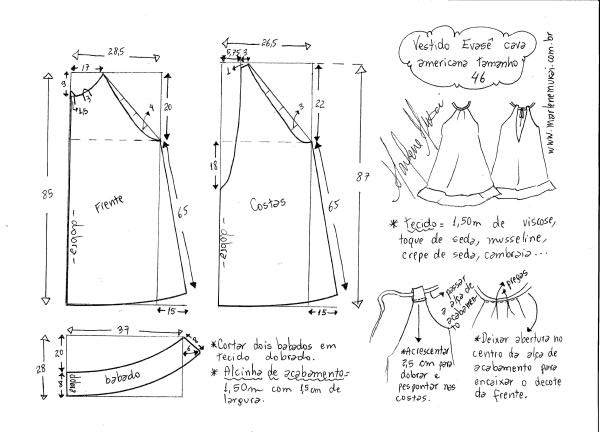 28,5
17
9
3
1,5
4
20
85
Frente
dobra
65
15
26,5
5,75 3
1
3
22
18
87
Costas
dobra
65
15
Vestido Evasê cava
americana tamanho
46
www.marlenemukai.com.br
Marlene Mukai
* tecido = 1,50m de viscose,
toque de seda, musseline,
crepe de seda, cambraia...
37
20
28
8
dobra
babado
6
* Cortar dois babados em
tecido dobrado.
* Alcinha de acabamento =
1,50m com 15cm de
largura.
passar
a alça de
acabamento
* Acrescentar
2,5 cm para
dobrar e
pespontar nas
costas.
pregas
* Deixar abertura no
centro da alça de
acabamento para
encaixar o decote
da frente.